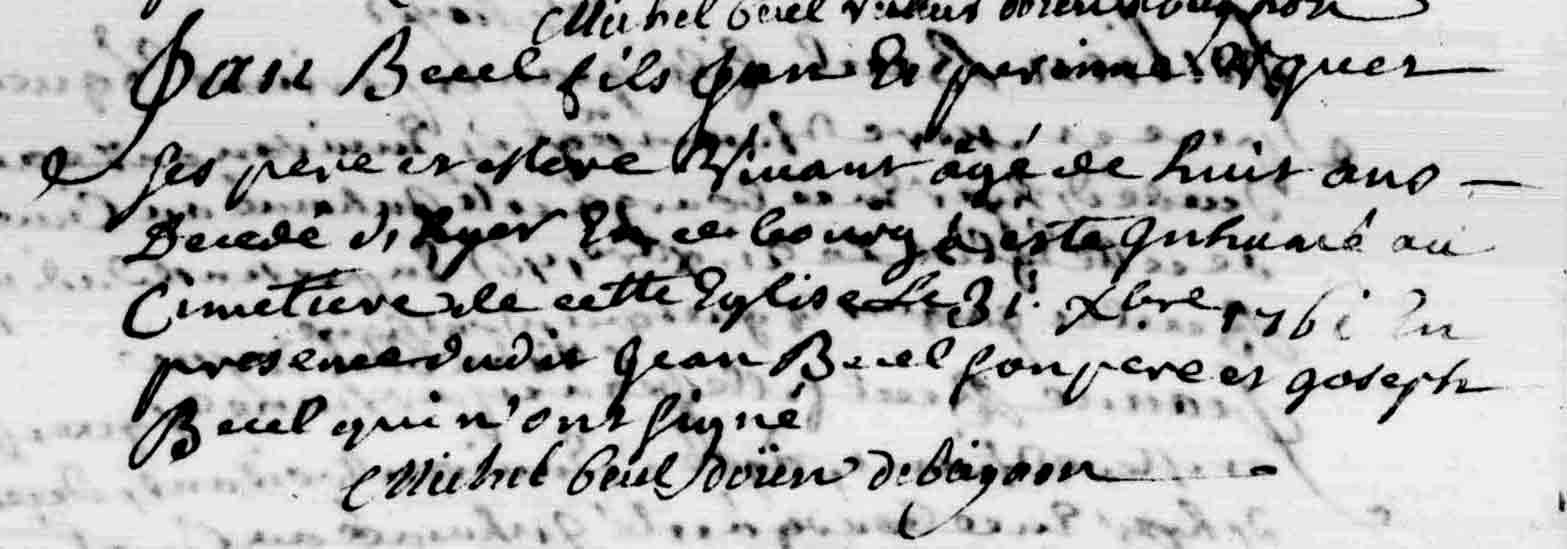 Michel beul
Jan Beuel fils Jan Et perinne
Ses pere et Mere Vivant âgé de huit ans —
Decedé d'hyer En ce bourg à esté Inhumé au
Cimetiere de cette Eglise Le 31. Xbre 1761 En
presence dudit Jean Beuel son pere et Joseph
Beuel qui n'ont signé
Michel beul doïen de baignon